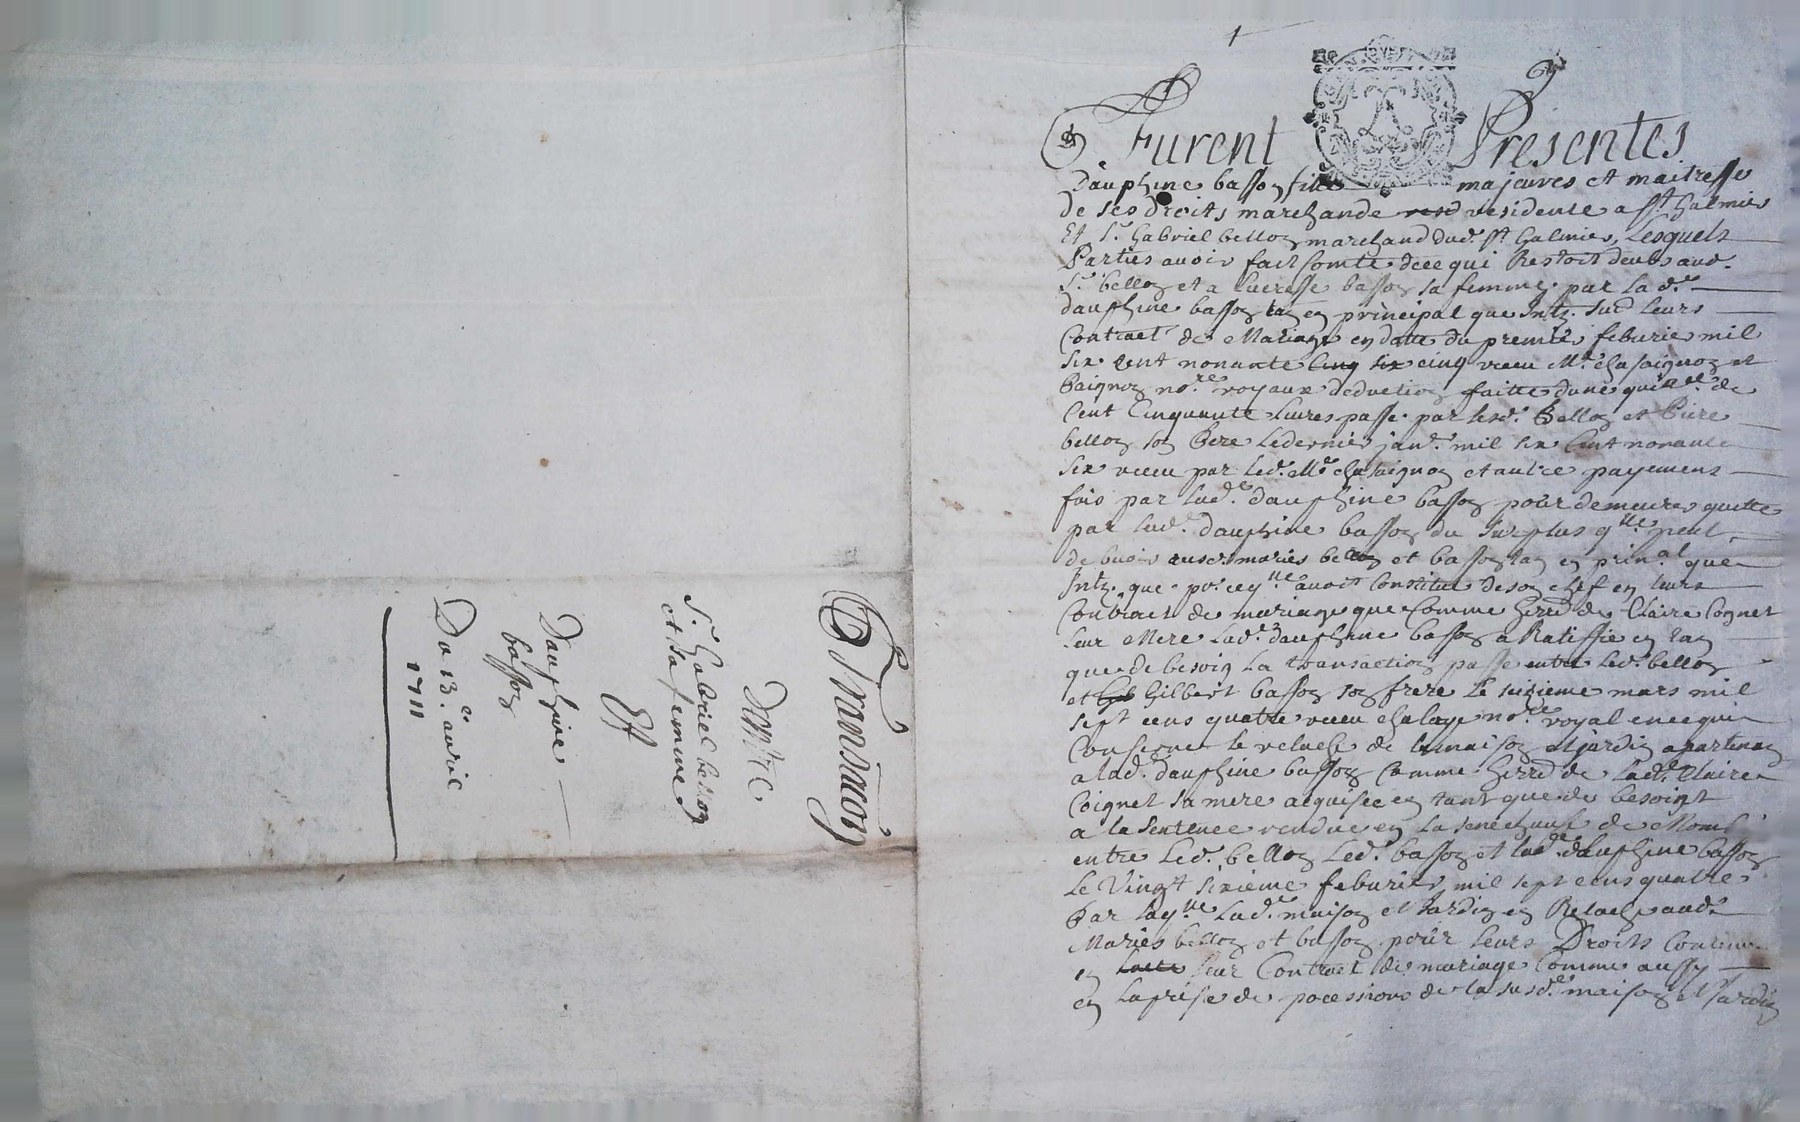 Transaçõn
Dentre
Sr. Gabriel bellon
et sa femme
Et
Dauphine
basson
Du 13e. avril
1711
1
Furent Presentes
Dauphine basson fille majeures et maitresse
de ses droits marchande resid residente a st Galmier
Et sr. Gabriel bellon marchand dud. st Galmier, Lesquels
Parties avoir fait Comte dece qui Restoit deubs aud.
Sr. bellon et a Lucresse basson sa femme par lad.e
dauphine basson tan en principal que Intz. sur leurs
Contract de Mariage en datte du premier feburier mil
six cent nonante cinq six cinq receu Me. chasaignon et
no.re royaux deduction faitte dune quitt.ce de
Cent Cinquante Liures passe par lesd. Bellon et Piere
bellon son Pere Ledernier janr. mil six Cent nonante
six receu par led. Me. chasaignon et autre payemens
fais par lad.e dauphine basson pour demeurer quitte
par lad.e dauphine basson du surplus q.lle peut
de buoir ausd. maries bellon et basson tan en prin.al que
Intz. que avoit Constitue de son chef en leurs
Contract de mariage que Comme hered. de Claire Cognet
leur Mere Lad.e dauphine basson a Ratiffie en tan
que de besoin La transaction passe entre led. bellon
et Gilbert basson son frere le seizieme mars mil
sept cens quatre receu chalaye no.re royal en ce qui
Conserne le relache de la maison et jardin apartenan
a lad. dauphine basson Comme herred. de Lad.e Claire
Coignet sa mere aequisée en tant que de besoingt
a la sentence rendue en la senechausé de
entre Led. bellon Led. basson et lad.e dauphine basson
Le Vingt sixieme feburier mil sept cens quatre
Par laq.lle Lad.e maison et Jardin en Relache aud.
Mariés bellon et basson pour leurs Droits
en leur Contract de mariage Comme aussy
en la prise de pocessions de la susd.e maison et Jardin